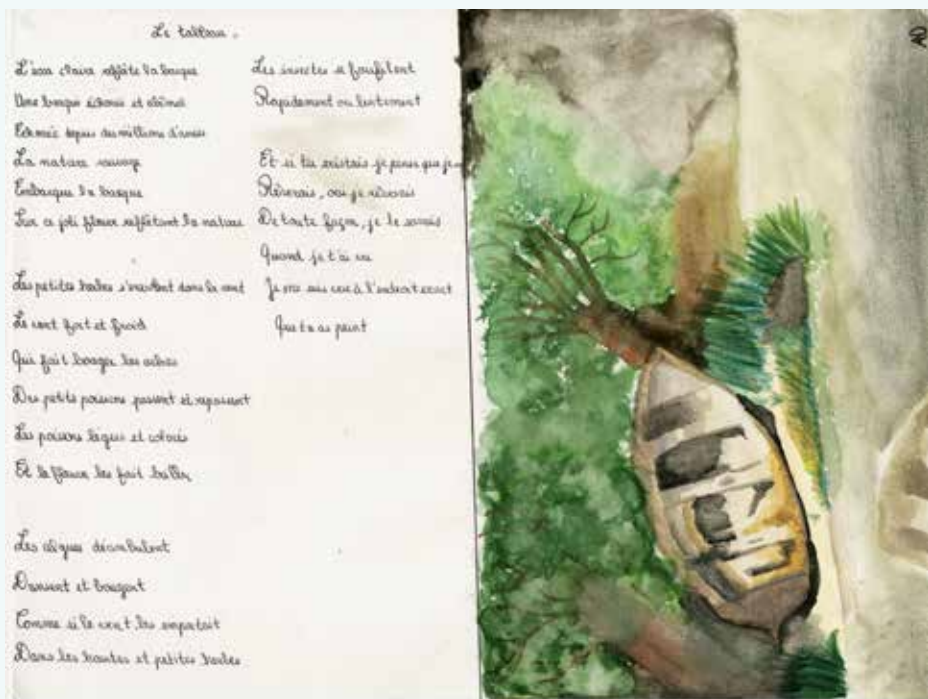 Le tableau.
L'eau claire reflète la barque
Une barque échouée et abîmée
depuis des millions d'années
La nature sauvage
Embarque la barque
Sur ce joli fleuve reflétant la nature
Les petites herbes dans le vent
Le vent fort et froid
Qui fait bouger les arbres
Des petits poissons passent et repassent
Les poissons légers et colorés
Et le fleuve les fait briller
Les algues déambulent
Dansent et bougent
Comme si le vent les emportait
Dans les hautes et petites herbes
Les insectes se faufilent
Rapidement ou lentement
Et si tu existais je pense que je
Rêverais, oui je rêverais
De toute façon, je le savais
Quand je t'ai vu
Je me suis cru à l'endroit exact
Que tu as peint